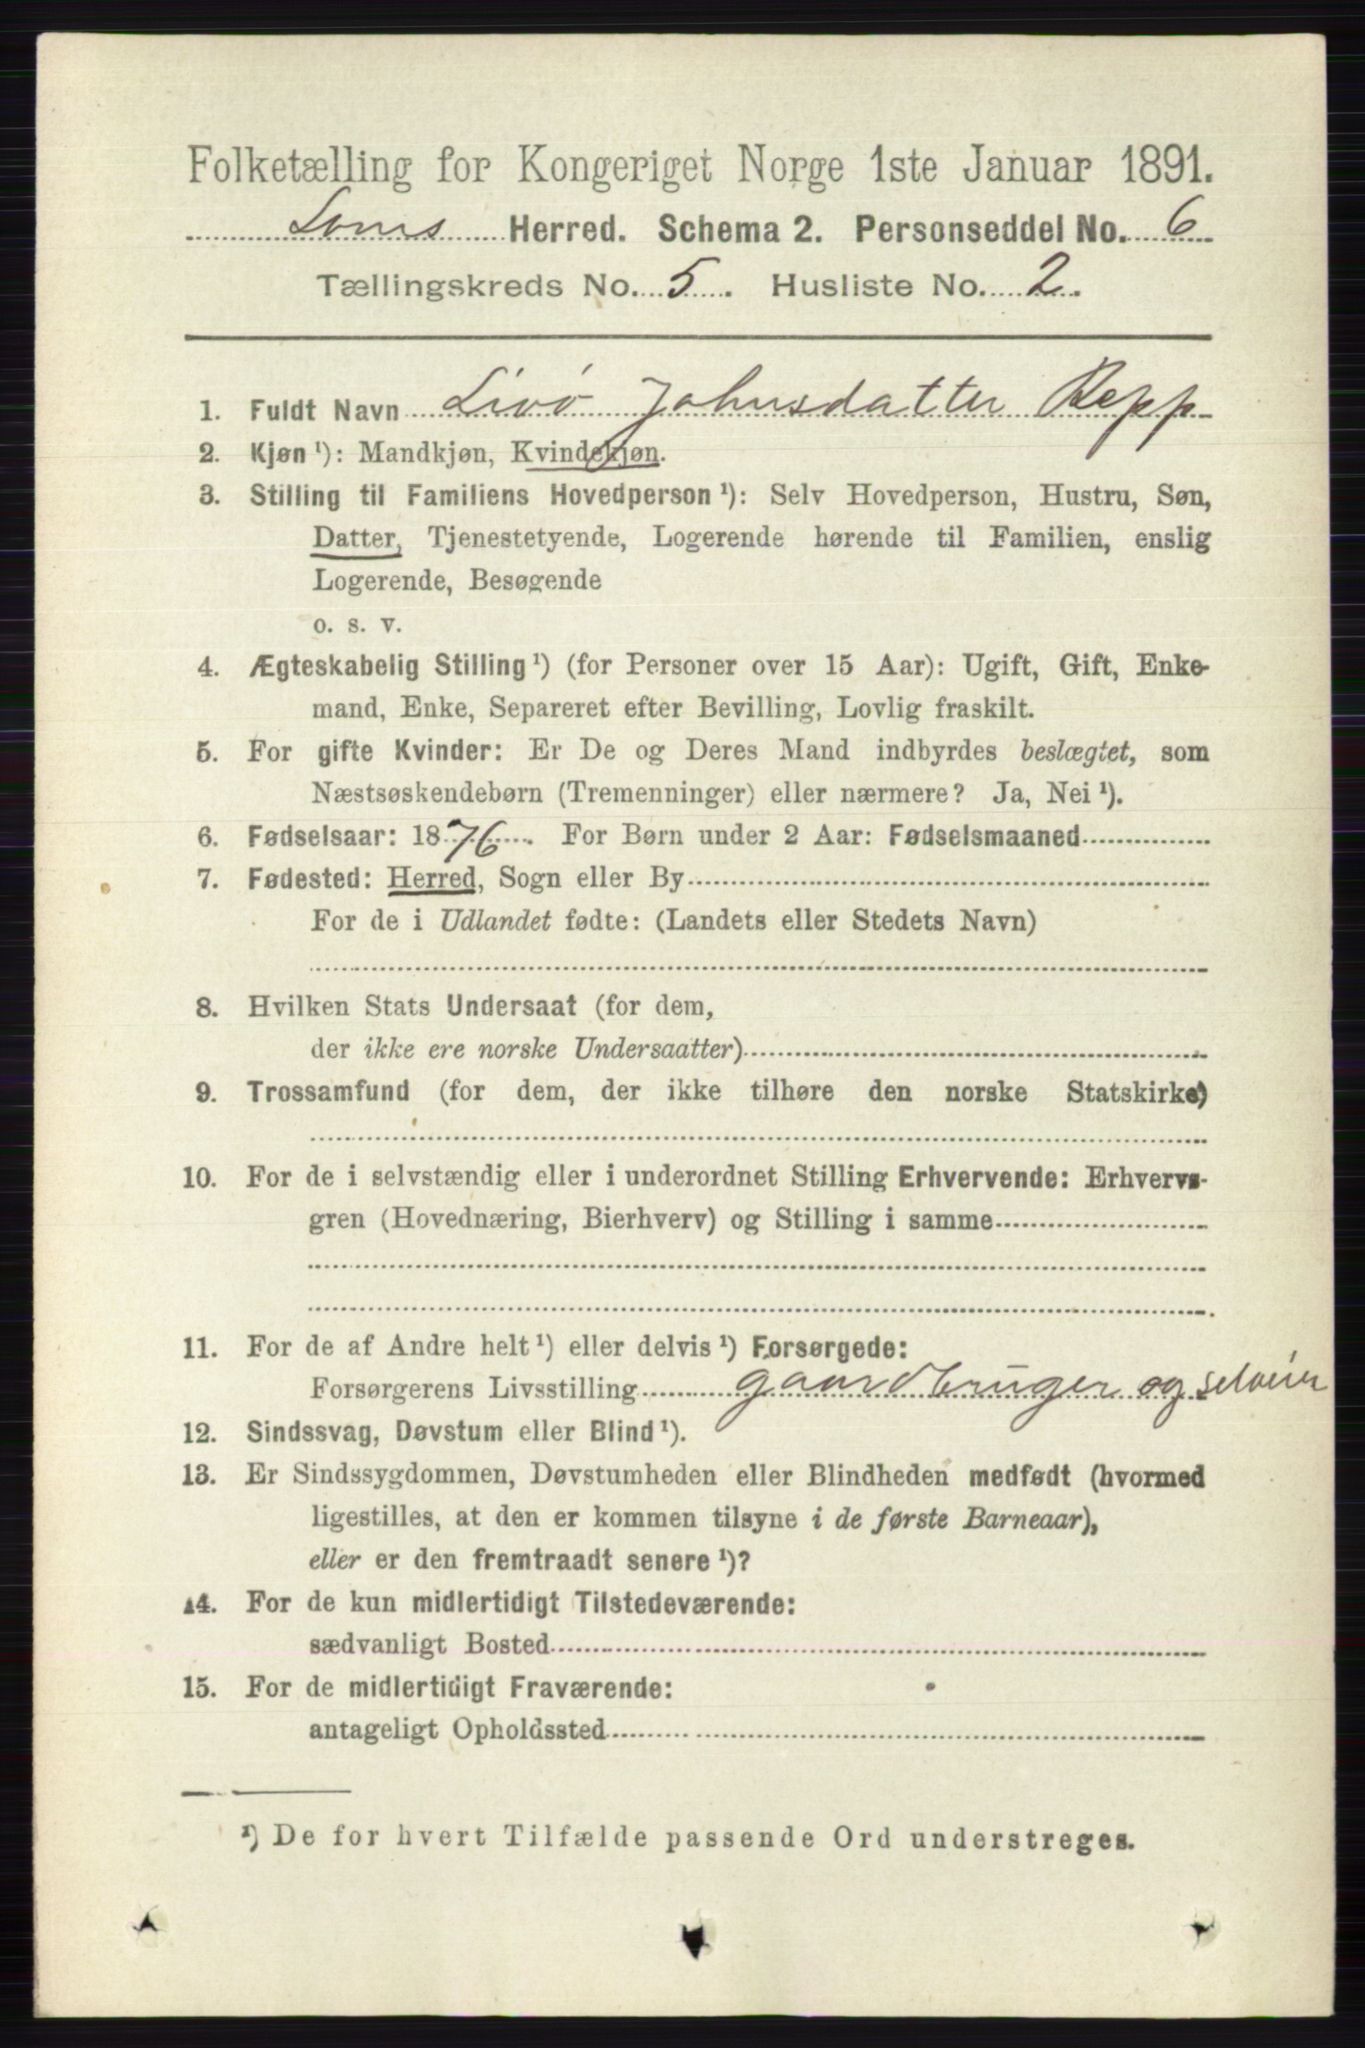 Folketælling for Kongeriget Norge 1ste Januar 1891.
Loms Herred. Schema 2. Personseddel No. 6
Tællingskreds No. 5. Husliste No. 2.
1. Fuldt Navn Livø Johnsdatter Repp
2. Kjøn¹): Mandkjøn, Kvindekjøn.
3. Stilling til Familiens Hovedperson¹): Selv Hovedperson, Hustru, Søn,
Datter, Tjenestetyende, Logerende hørende til Familien, enslig
Logerende, Besøgende
o. s. v.
4. Ægteskabelig Stilling¹) (for Personer over 15 Aar): Ugift, Gift, Enke-
mand, Enke, Separeret efter Bevilling, Lovlig fraskilt.
5. For gifte Kvinder: Er De og Deres Mand indbyrdes beslægtet, som
Næstsøskendebørn (Tremenninger) eller nærmere? Ja, Nei¹).
6. Fødselsaar: 1876. For Børn under 2 Aar: Fødselsmaaned
7. Fødested: Herred, Sogn eller By
For de i Udlandet fødte: (Landets eller Stedets Navn)
8. Hvilken Stats Undersaat (for dem,
der ikke ere norske Undersaatter)
9. Trossamfund (for dem, der ikke tilhøre den norske Statskirke)
10. For de i selvstændig eller i underordnet Stilling Erhvervende: Erhvervs-
gren (Hovednæring, Bierhverv) og Stilling i samme
11. For de af Andre helt¹) eller delvis¹) Forsørgede:
Forsørgerens Livsstilling gaardbruger og selveier
12. Sindssvag, Døvstum eller Blind¹).
13. Er Sindssygdommen, Døvstumheden eller Blindheden medfødt (hvormed
ligestilles, at den er kommen tilsyne i de første Barneaar),
eller er den fremtraadt senere¹)?
14. For de kun midlertidigt Tilstedeværende:
sædvanligt Bosted
15. For de midlertidigt Fraværende:
antageligt Opholdssted
¹) De for hvert Tilfælde passende Ord understreges.